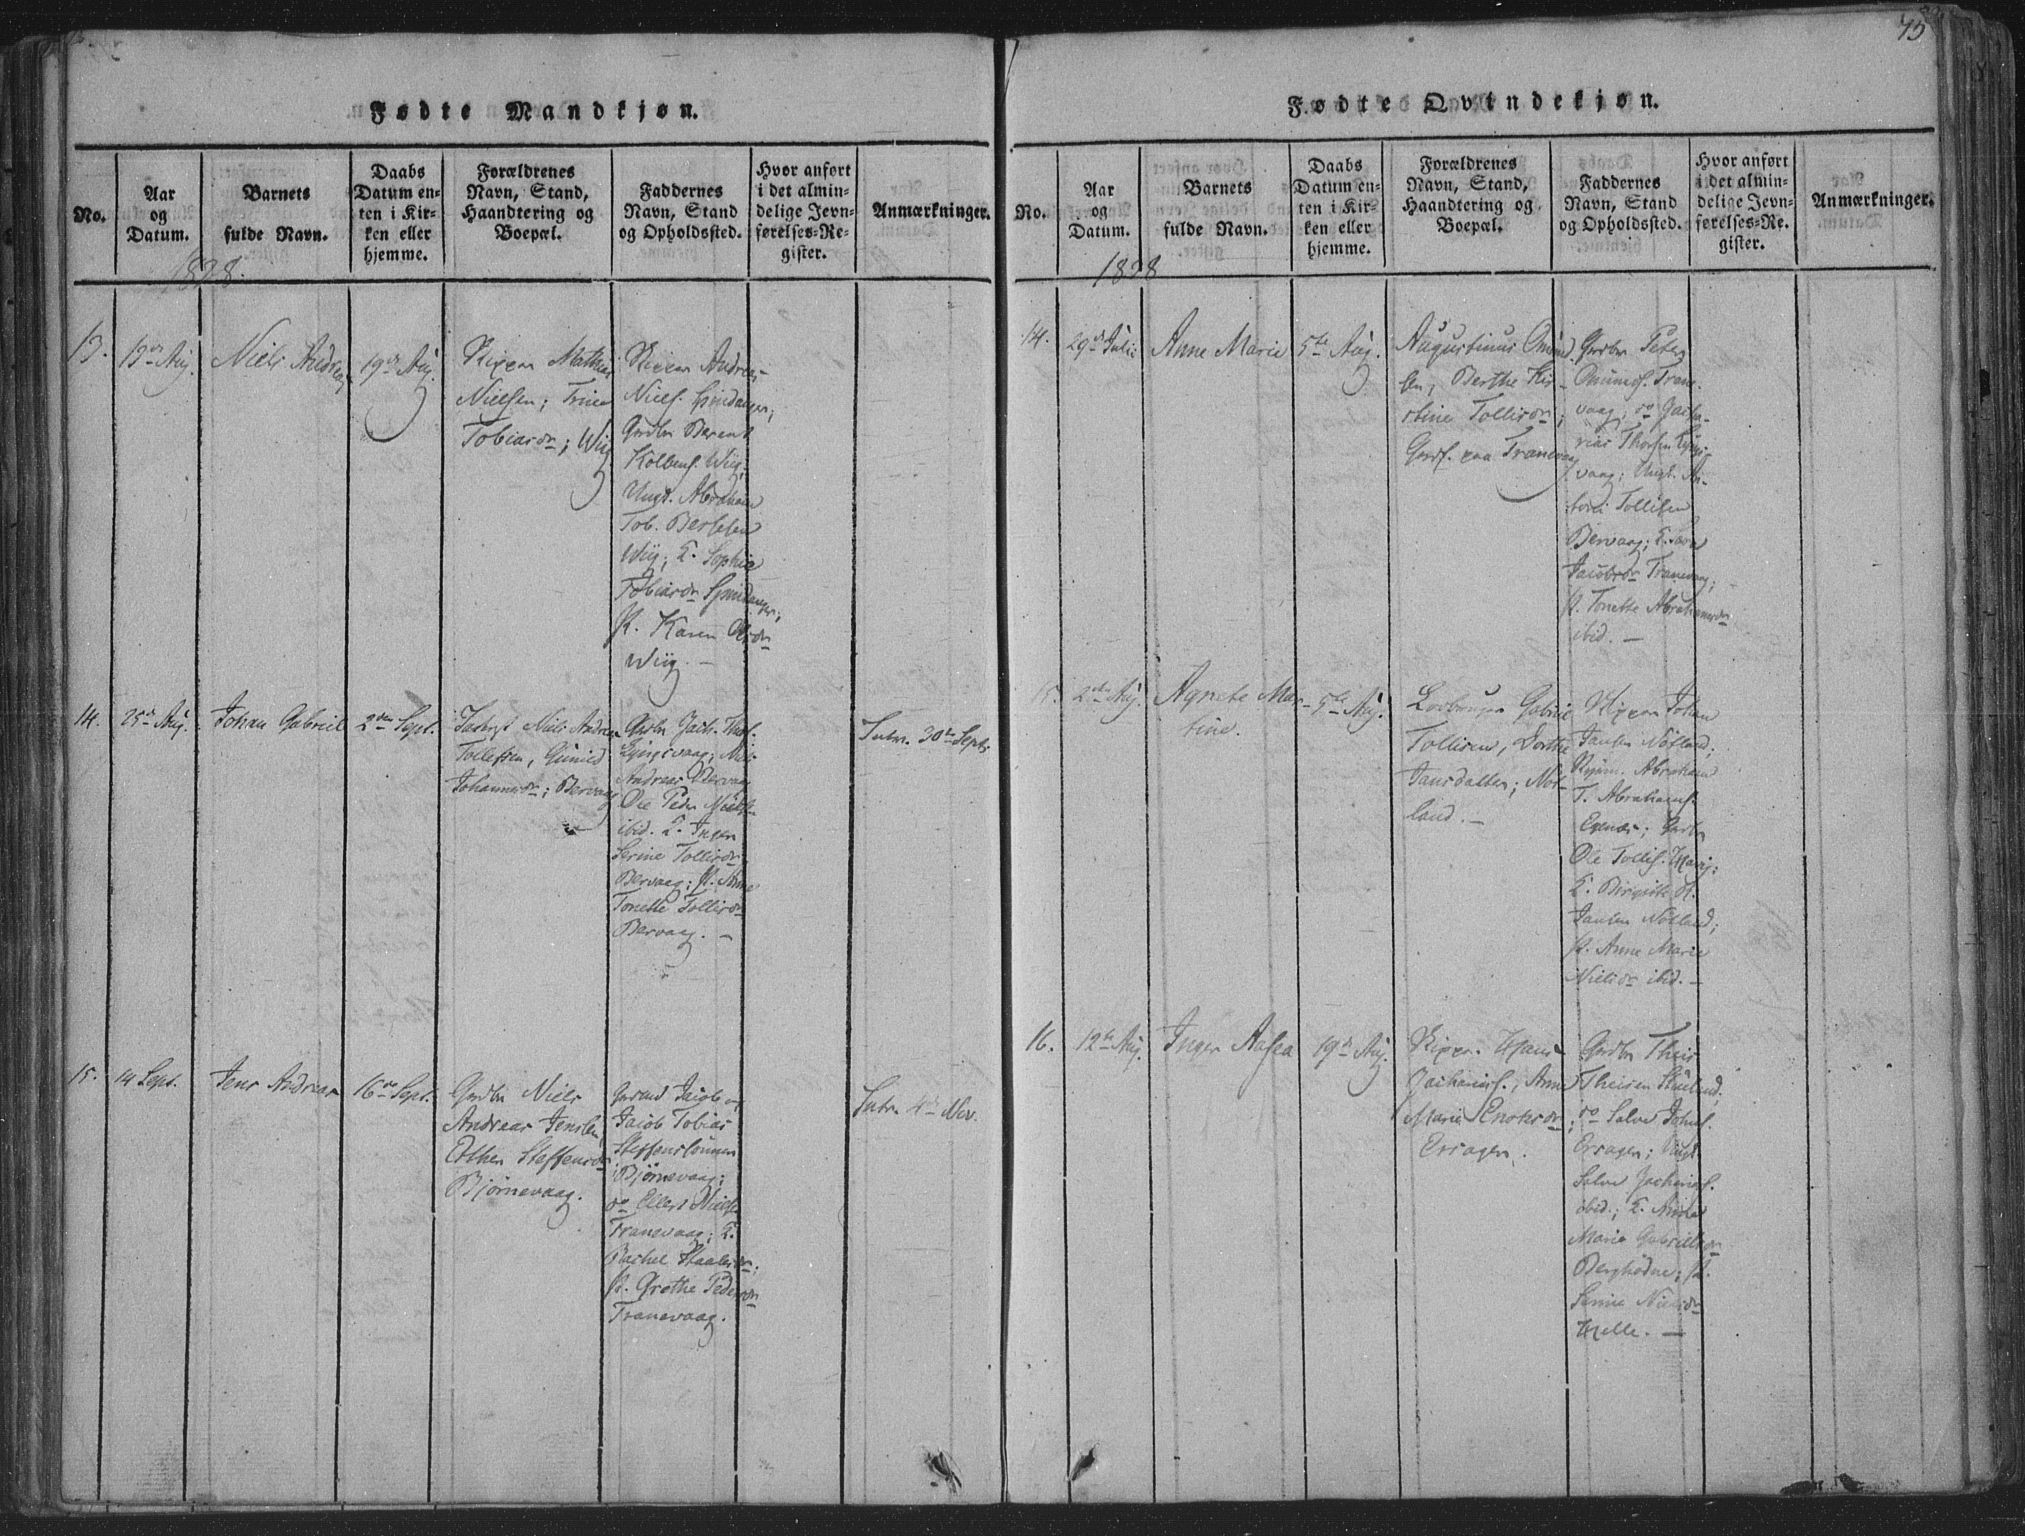 75
Fødte Mandkjøn.
No.
Aar
og
Datum.
Barnets
fulde Navn.
Daabs
Datum en-
ten i Kir-
ken eller
hjemme.
Forældrenes
Navn, Stand,
Haandtering og
Boepæl.
Faddernes
Navn, Stand
og Opholdssted.
Hvor anført
i det almin-
delige Jevn-
førelses-Re-
gister.
Anmærkninger.
1828.
13.
13de Aug.
Niels Andreas
19de Aug.
Skipper Mathias
Nielsen; Trine
Tobiasdr; Wiig
Skipper Andreas
Niels. Spindanger;
Grdbr Berent
Kolbens. Wiig;
Ungk. Abraham
Tob. Bertelsen
Wiig; K. Sophie
Tobiasdr Spindanger;
P. Karen Olsdr
Wiig. —
14.
25de Aug.
Johan Gabriel
2den Sept.
Niels Andreas
Tollefsen, Gunild
Johannesdr; Bervaag
Grdbr Zach. Thors.
Lyngsvaag; Niels
Andreas Bervaag
Ole Peder Niels.
ibid. K. Inger
Serine Tollisdr
Bervaag; P. Anne
Tonette Tollisdr
Bervaag. —
Intr. 30te Septr
15.
14 Sept.
Jens Andreas
16de Sept.
Grdbr Niels
Andreas Jensen
Esther Steffensdr
Bjørnevaag.
Grdmd Jacob og
Jacob Tobias
Steffenssønner
Bjørnevaag;
do Ellert Niels.
Tranevaag; K.
Rachel Staalesdr;
P. Grethe Pedersdr
Tranevaag.
Intr. 4de Nov.
Fødte Qvindekjøn.
No.
Aar
og
Datum.
Barnets
fulde Navn.
Daabs
Datum en-
ten i Kir-
ken eller
hjemme.
Forældrenes
Navn, Stand,
Haandtering og
Boepæl.
Faddernes
Navn, Stand
og Opholdssted.
Hvor anført
i det almin-
delige Jevn-
førelses-Re-
gister.
Anmærkninger.
1828
14.
29de Julii
Anne Marie
5te Aug.
Augustinus Omund-
sen, Berthe Kir-
stine Tollisdr;
Grdf. paa Tranevaag
Grdbr Peter
Omunds. Trane-
vaag, do Zacha-
rias Thorsen Lyngs-
vaag; Ungk. An-
Tollisen
Bervaag; K.
Jacobsdr Tranevaag;
P. Tonette Abrahamsdr
ibid. —
15.
2den Aug.
Agnete Mar-
tine.
5te Aug.
Gabriel
Tollisen, Dorthe
Jansdatter; Nøt-
land. —
Skipper Johan
Jansen Nøtland;
Abraham
T. Abrahams.
Egenæs; Grdbr
Ole Tollis. Haug;
K. Birgithe St.
Jansen Nøtland;
P. Anne Marie
Nielsdr ibid. —
16.
12te Aug.
Inger Aasea
19de Aug.
Skipper Hans
Zachariæs., Anne
Marie Enoksdr;
Ersagen.
Grdbr Theis
Theisen
do Salve Johns.
Ersagen; Ungk.
Salve Zacharias.
ibid.; K.
Marie Gabrielsdr
Berghødne; P.
Serine Nielsdr
Helle. —